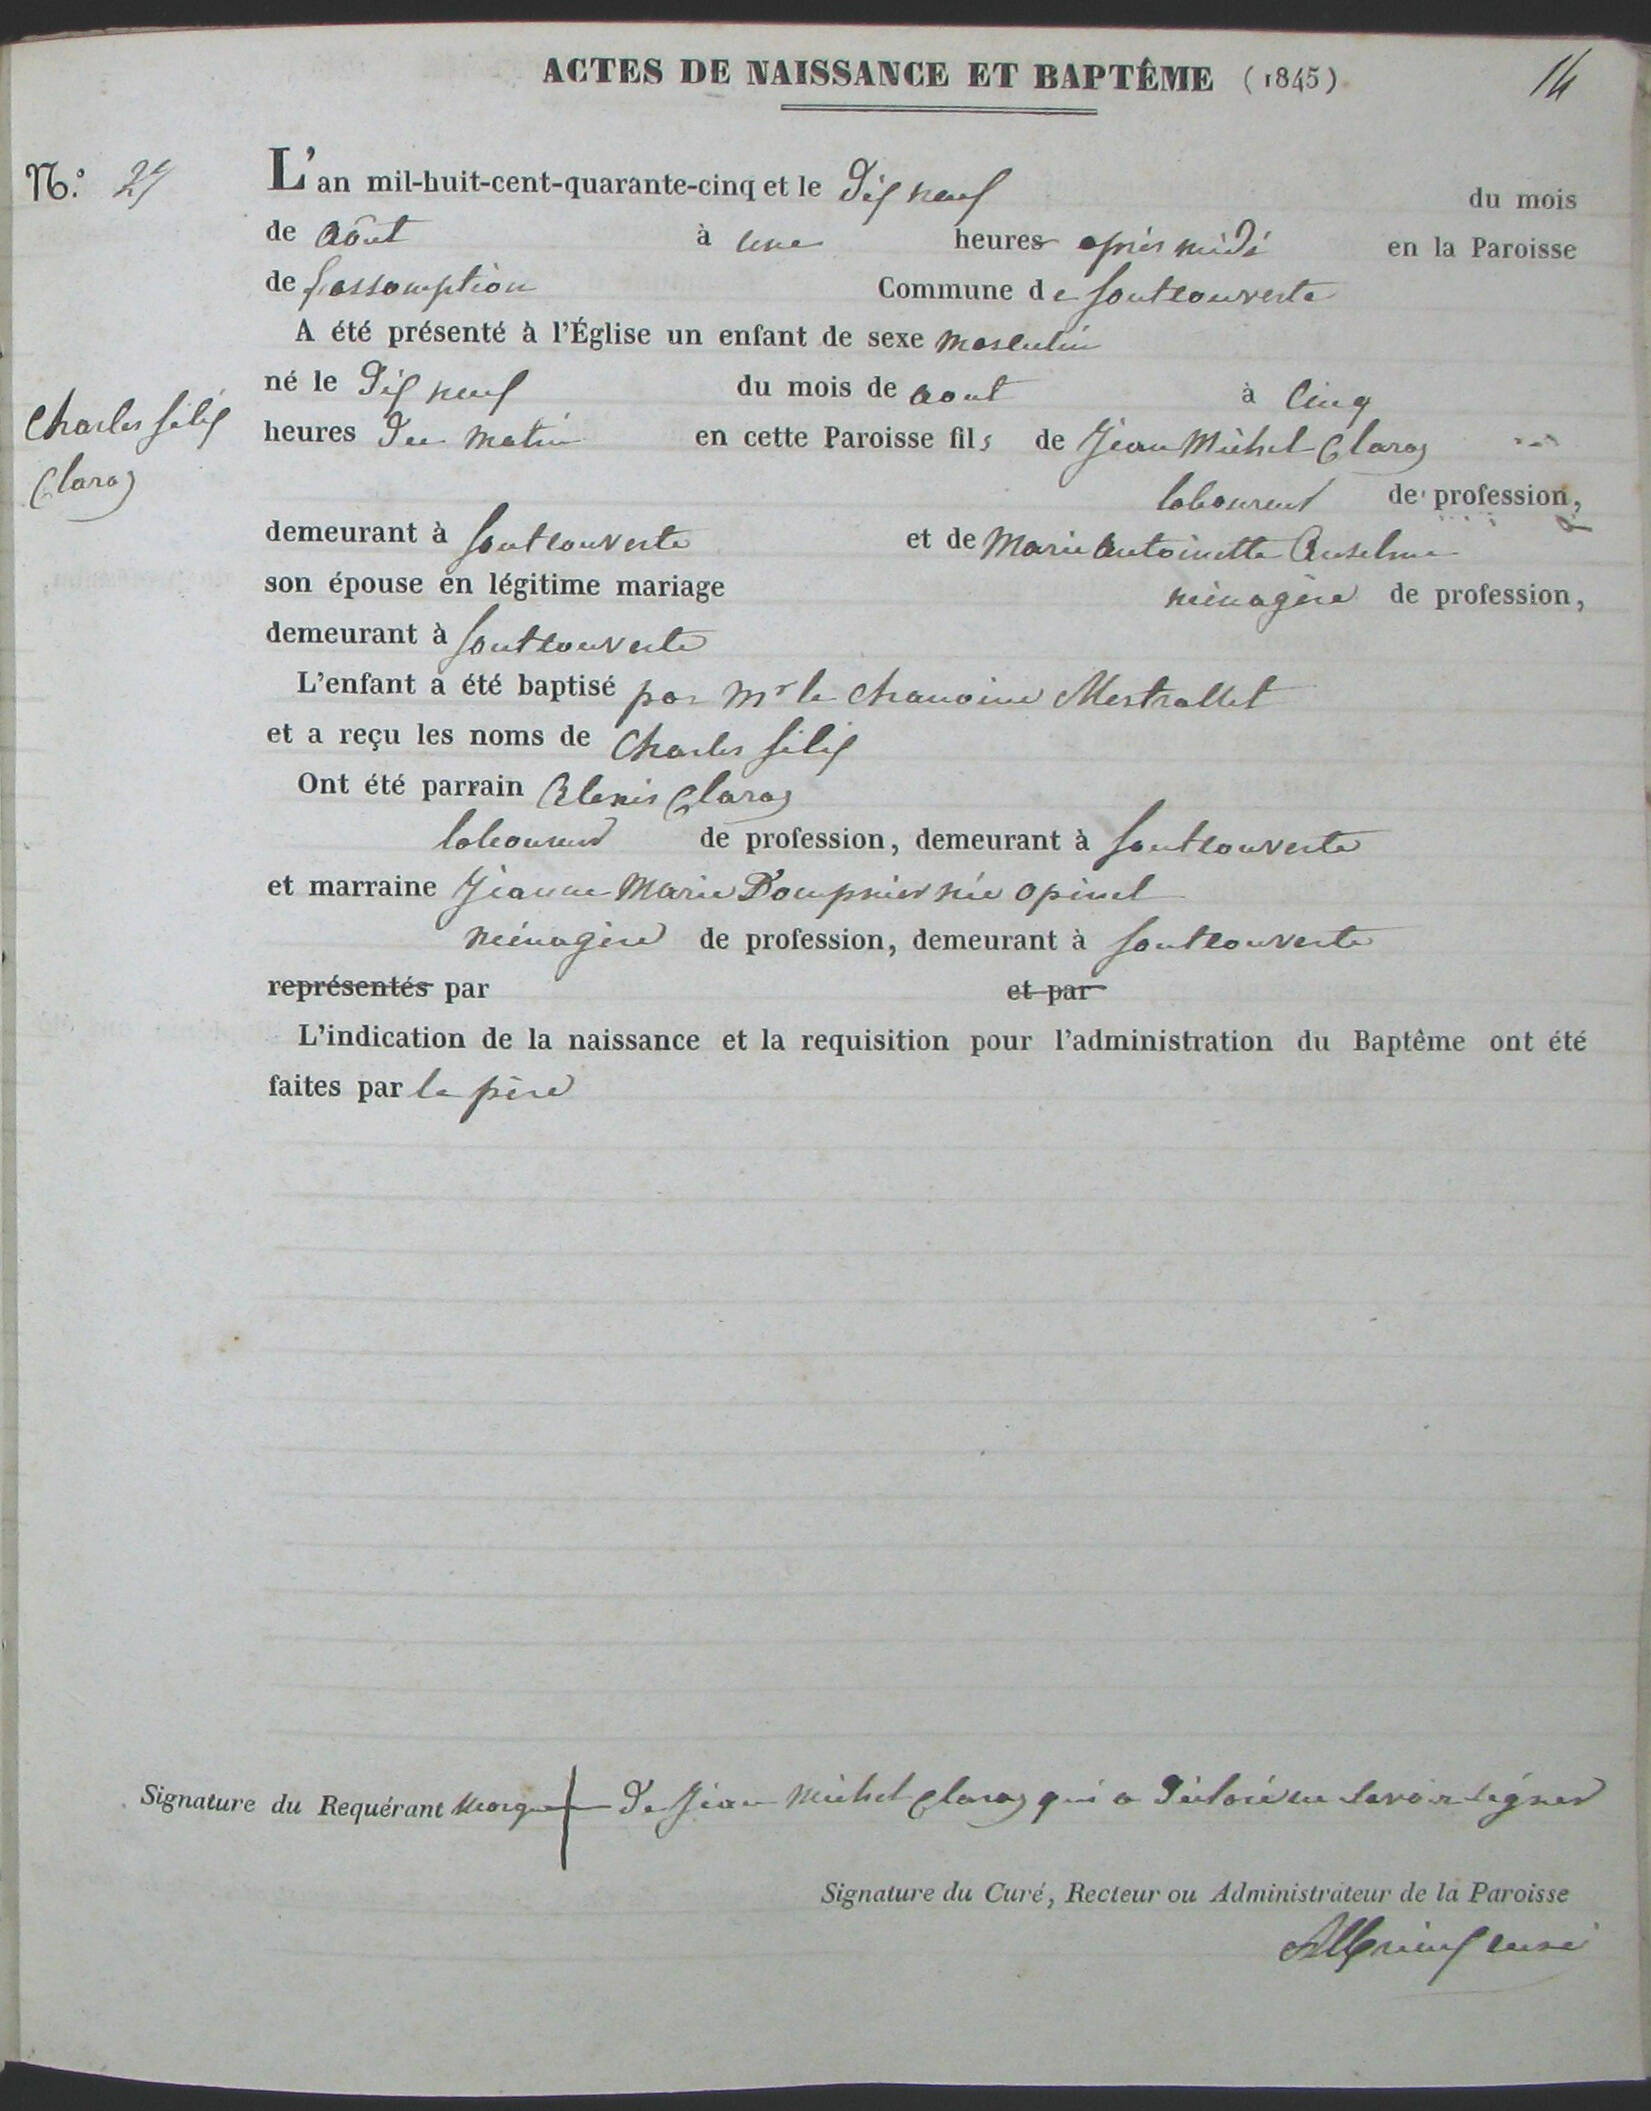 ACTES DE NAISSANCE ET BAPTÊME (1845)
14
N.° 27
L'an mil-huit-cent-quarante-cinq et le dix neuf du mois
de août à une heures après midi en la Paroisse
de l'assomption Commune de fontcouverte
A été présenté à l'Église un enfant de sexe masculin
né le dix neuf du mois de aout à cinq
Charles félix
Claraz
heures du matin en cette Paroisse fils de Jean Michel Claraz
laboureur de profession,
demeurant à fontcouverte et de Marie antoinette Anselme
son épouse en légitime mariage ménagère de profession,
demeurant à fontcouverte
L'enfant a été baptisé par Mr le chanoine Mestrallet
et a reçu les noms de Charles félix
Ont été parrain Alexis Claraz
laboureur de profession, demeurant à fontcouverte
et marraine Jeanne Marie Dompnier née opinel
ménagère de profession, demeurant à fontcouverte
représentés par et par
L'indication de la naissance et la requisition pour l'administration du Baptême ont été
faites par le père
Signature du Requérant marque de Jean Michel Claraz qui a déclaré ne savoir signer
Signature du Curé, Recteur ou Administrateur de la Paroisse
curé